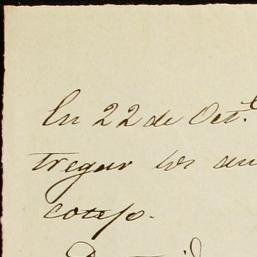 En 22 de Oct.e
tregar los au
cotejo.